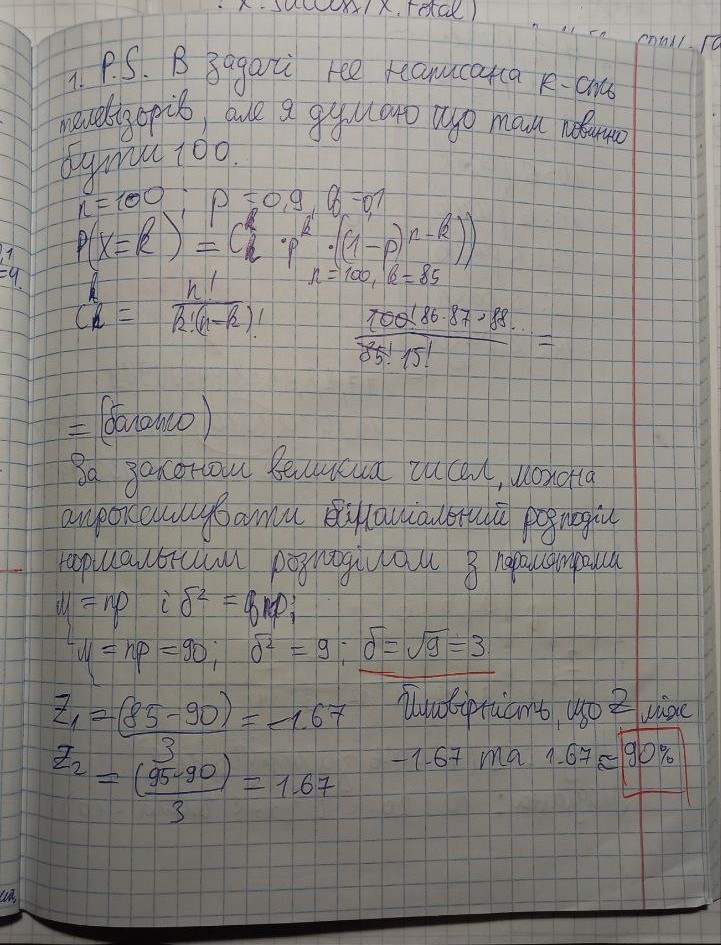 x.success/x.total)
1. P.S. В задачі не написана к-сть
телевізорів, але я думаю що там повинно
бути 100.
n=100 ; p=0,9, q=0,1
P(x=k) = Cₙᵏ · pᵏ · ((1-p)ⁿ⁻ᵏ))
n=100, k=85
Cₙᵏ = n! / k!(n-k)!
100! 86·87·88... / 85! 15! =
= (багато)
За законом великих чисел, можна
апроксимувати біноміальний розподіл
нормальним розподілом з параметрами
μ = np і б² = qnp;
μ = np = 90; б² = 9; б = √9 = 3
Z₁ = (85-90) / 3 = -1.67
Z₂ = (95-90) / 3 = 1.67
Ймовірність, що Z між
-1.67 та 1.67 ≈ 90%